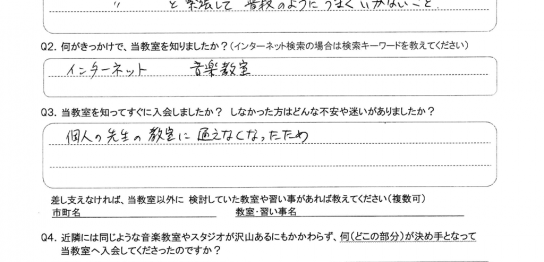 〃 と緊張して普段のようにうまくいかないこと。
Q2. 何がきっかけで、当教室を知りましたか?(インターネット検索の場合は検索キーワードを教えてください)
インターネット 音楽教室
Q3. 当教室を知ってすぐに入会しましたか? しなかった方はどんな不安や迷いがありましたか?
個人の先生の教室に通えなくなったため
差し支えなければ、当教室以外に 検討していた教室や習い事があれば教えてください(複数可)
市町名 教室・習い事名
Q4. 近隣には同じような音楽教室やスタジオが沢山あるにもかかわらず、何(どこの部分)が決め手となって
当教室へ入会してくださったのですか?